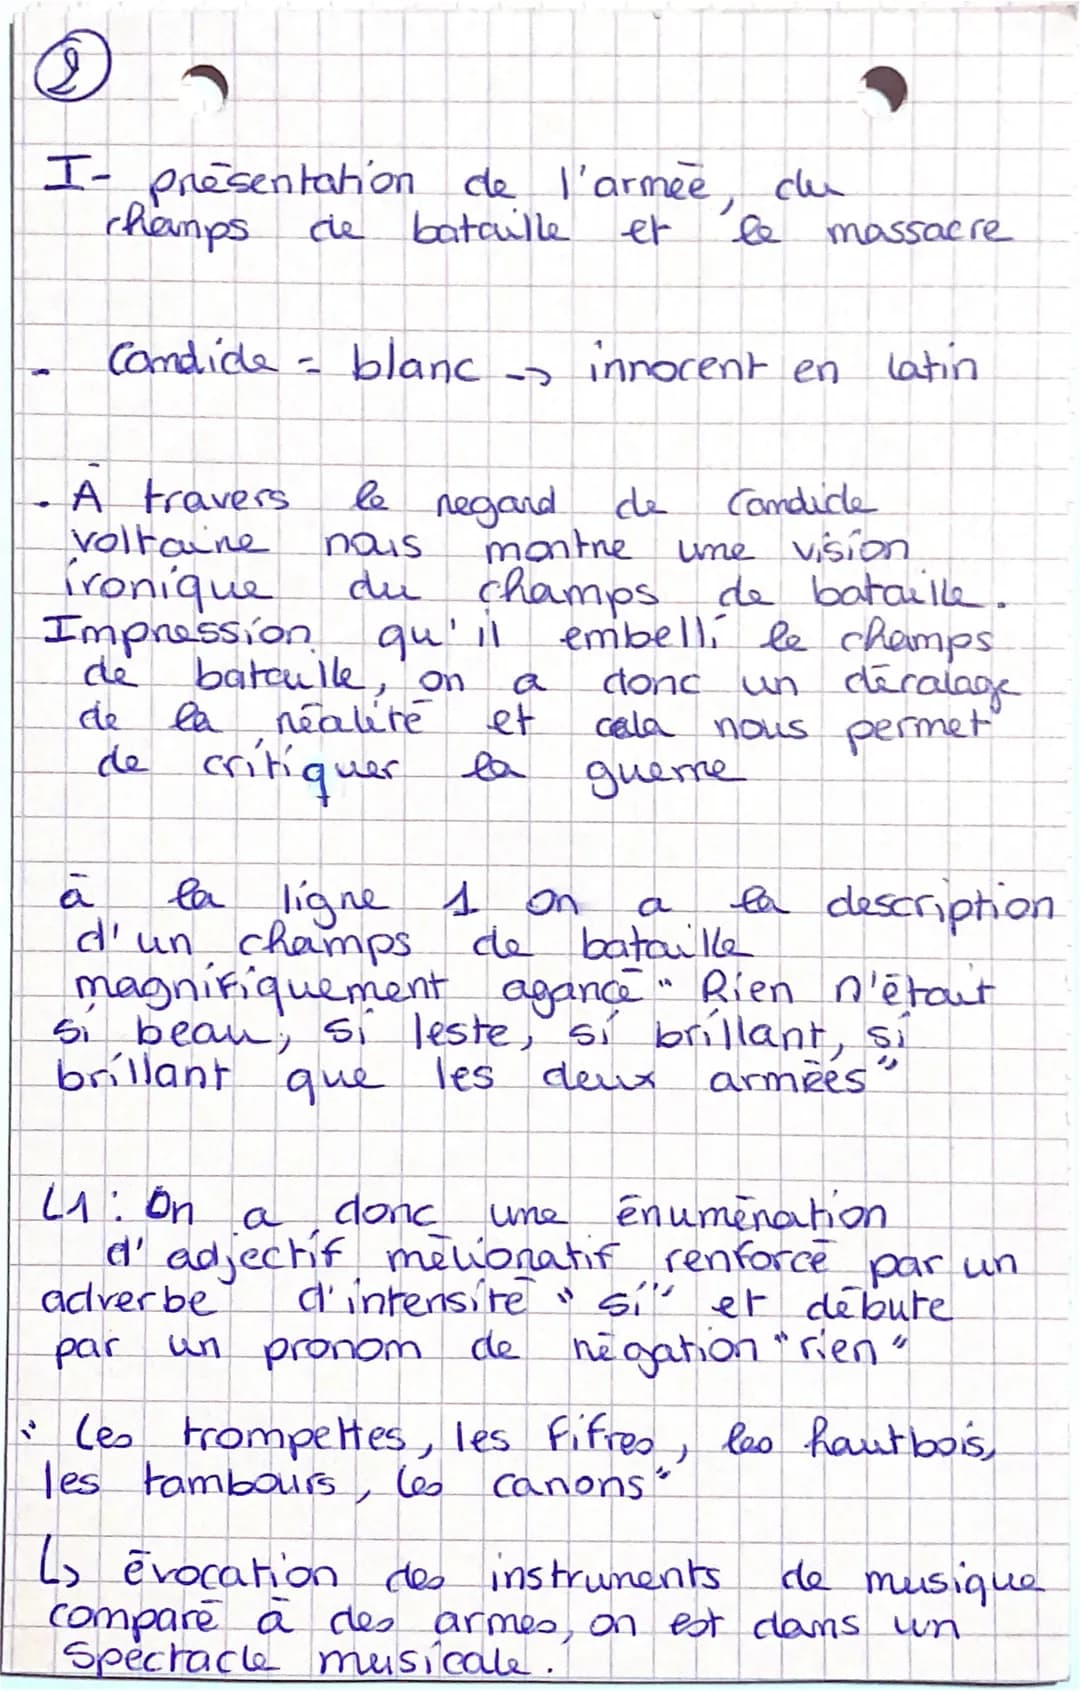 2
I- présentation de l'armée, du
champs de bataille et le massacre
- Candide = blanc → innocent en latin
. À travers le regard de Candide
voltaire nous montre une vision
ironique du champs de bataille.
Impression qu'il embelli le champs
de bataille, on a donc un décalage
de la réalité et cela nous permet
de critiquer la guerre
à la ligne 1 on a la description
d'un champs de bataille
magnifiquement agancé " Rien n'était
si beau, si leste, si brillant, si
brillant que les deux armées"
L1 : On a donc une énumération
d'adjectif mélioratif renforcé par un
adverbe d'intensité " si" et débute
par un pronom de négation "rien"
" Les trompettes, les fifres, les hautbois,
les tambours, les canons"
↳ évocation des instruments de musique
comparé à des armes, on est dans un
spectacle musicale.